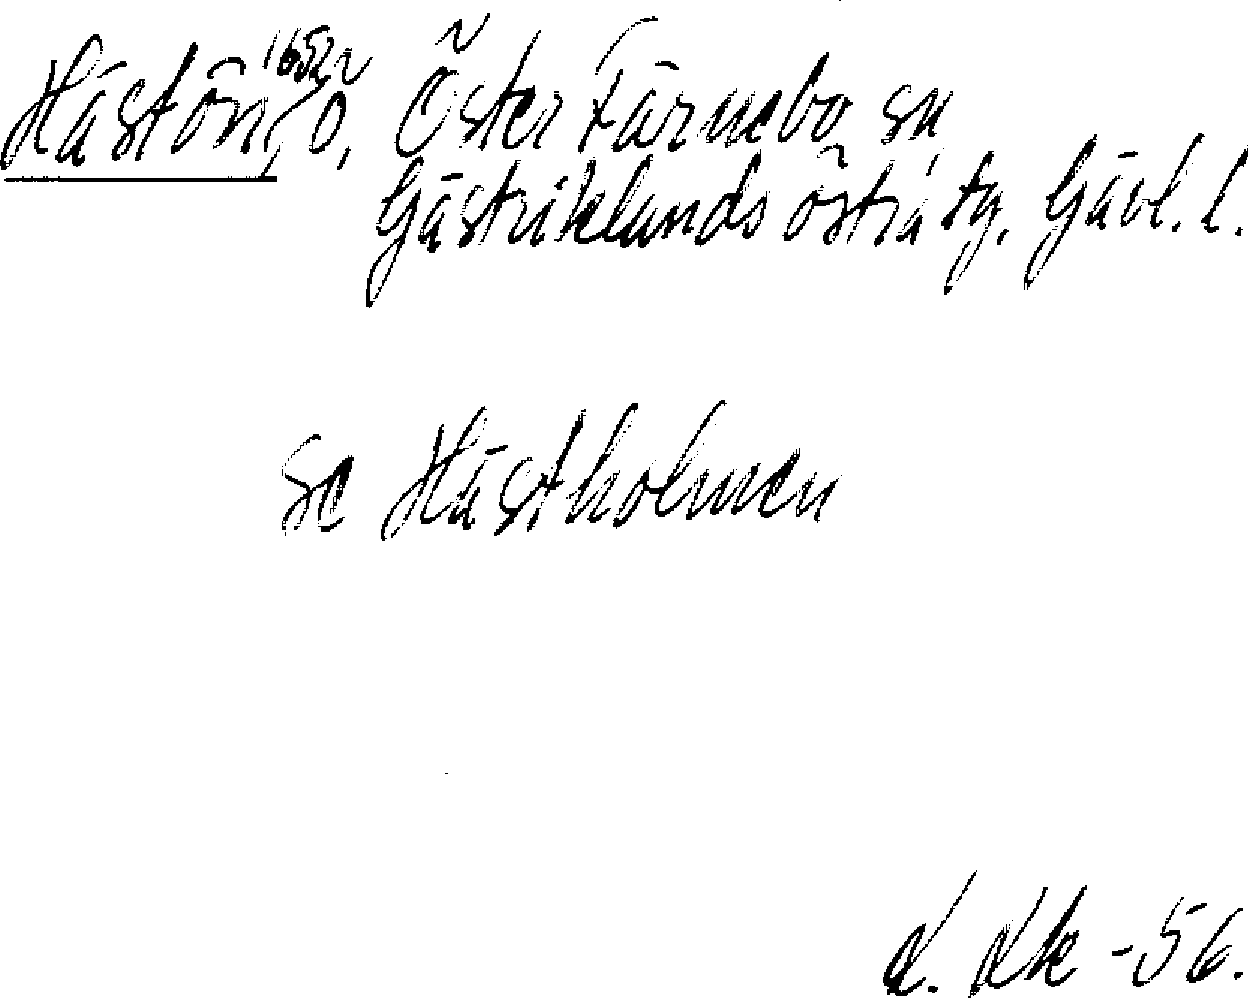 Hästön, 1652 ö, Öster Färnebo sn,
Gästriklands östra tg, Gävl. l.
se Hästholmen
d. Ek -56.